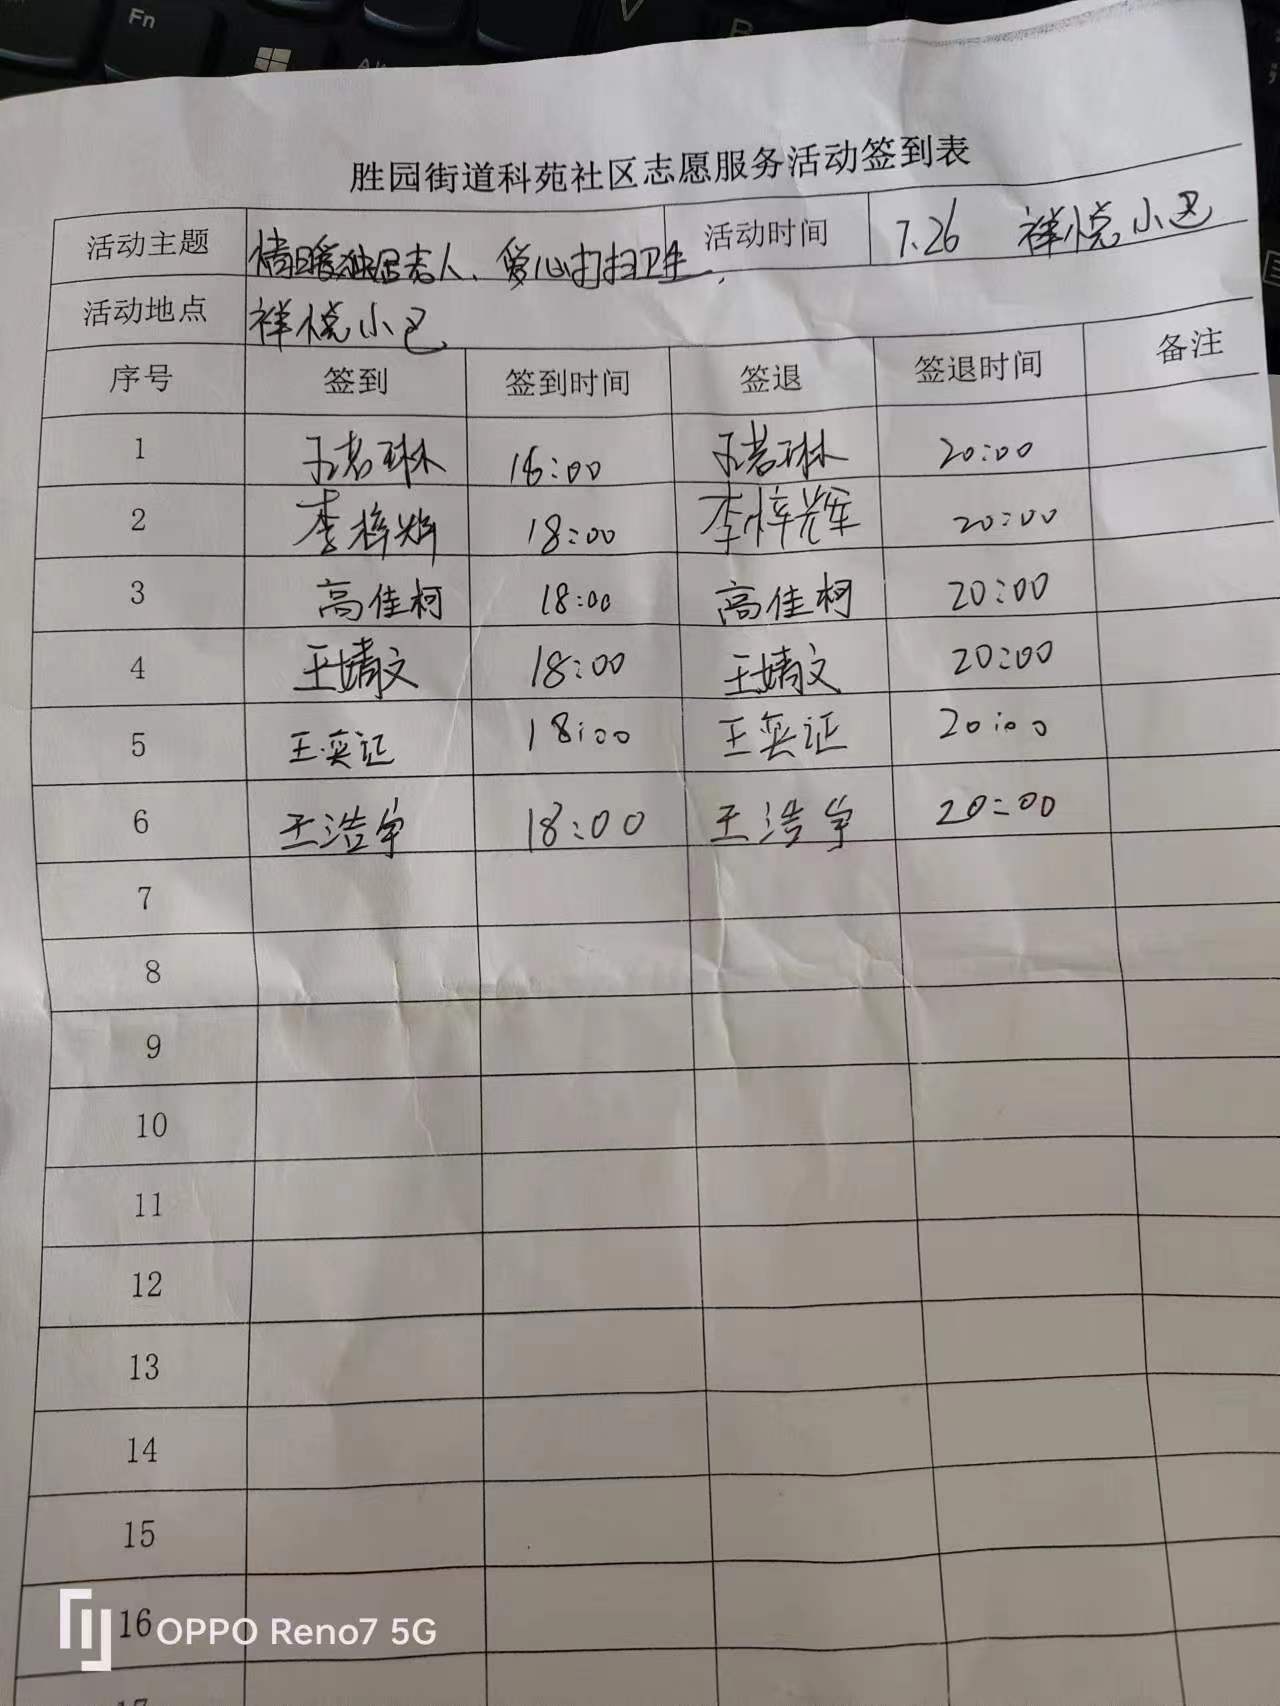 Fn
V
B
胜园街道科苑社区志愿服务活动签到表
活动主题 情暖独居老人、爱心打扫卫生. 活动时间 7.26 祥悦小区
活动地点 祥悦小区
序号 签到 签到时间 签退 签退时间 备注
1 王若琳 18:00 王若琳 20:00
2 李梓辉 18:00 李梓辉 20:00
3 高佳柯 18:00 高佳柯 20:00
4 王婧文 18:00 王婧文 20:00
5 王奕证 18:00 王奕证 20:00
6 王浩宇 18:00 王浩宇 20:00
7
8
9
10
11
12
13
14
15
16
OPPO Reno7 5G
17